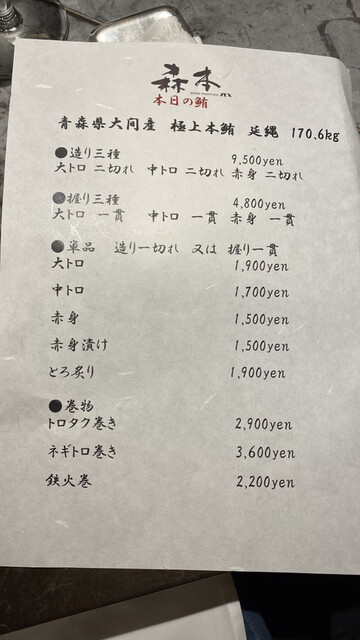 森本
本日の鮪
青森県大间産 極上本鮪 延縄 170.6kg
●造り三種 9,500yen
大トロ 二切れ 中トロ 二切れ 赤身 二切れ
●握り三種 4,800yen
大トロ 一貫 中トロ 一貫 赤身 一貫
●単品 造り一切れ 又は 握り一貫
大トロ 1,900yen
中トロ 1,700yen
赤身 1,500yen
赤身漬け 1,500yen
とろ炙り 1,900yen
●巻物
トロタク巻き 2,900yen
ネギトロ巻き 3,600yen
鉄火巻 2,200yen